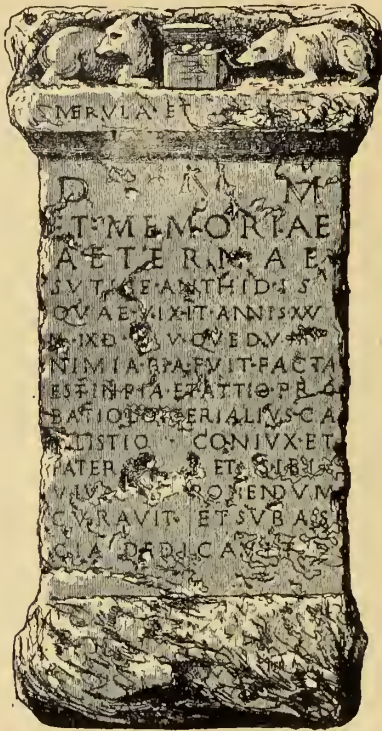 MERVLA ET
D M
ET·MEMORIAE
AETERNAE
SVTIAE·ANTHIDIS
QVAE·VIXIT·ANNIS·XXV
M·IXD V·QVEDVM
NIMIA·PIA·FVIT·FACTA
EST·INPIA·ET·ATTIO·PRO
BATIOLO·CERIALIVS·CA
LISTIO · CONIVX·ET
PATER ET·SIBI
PONENDVM
CVRAVIT·ET SVB AS
CIA DEDICAVIT